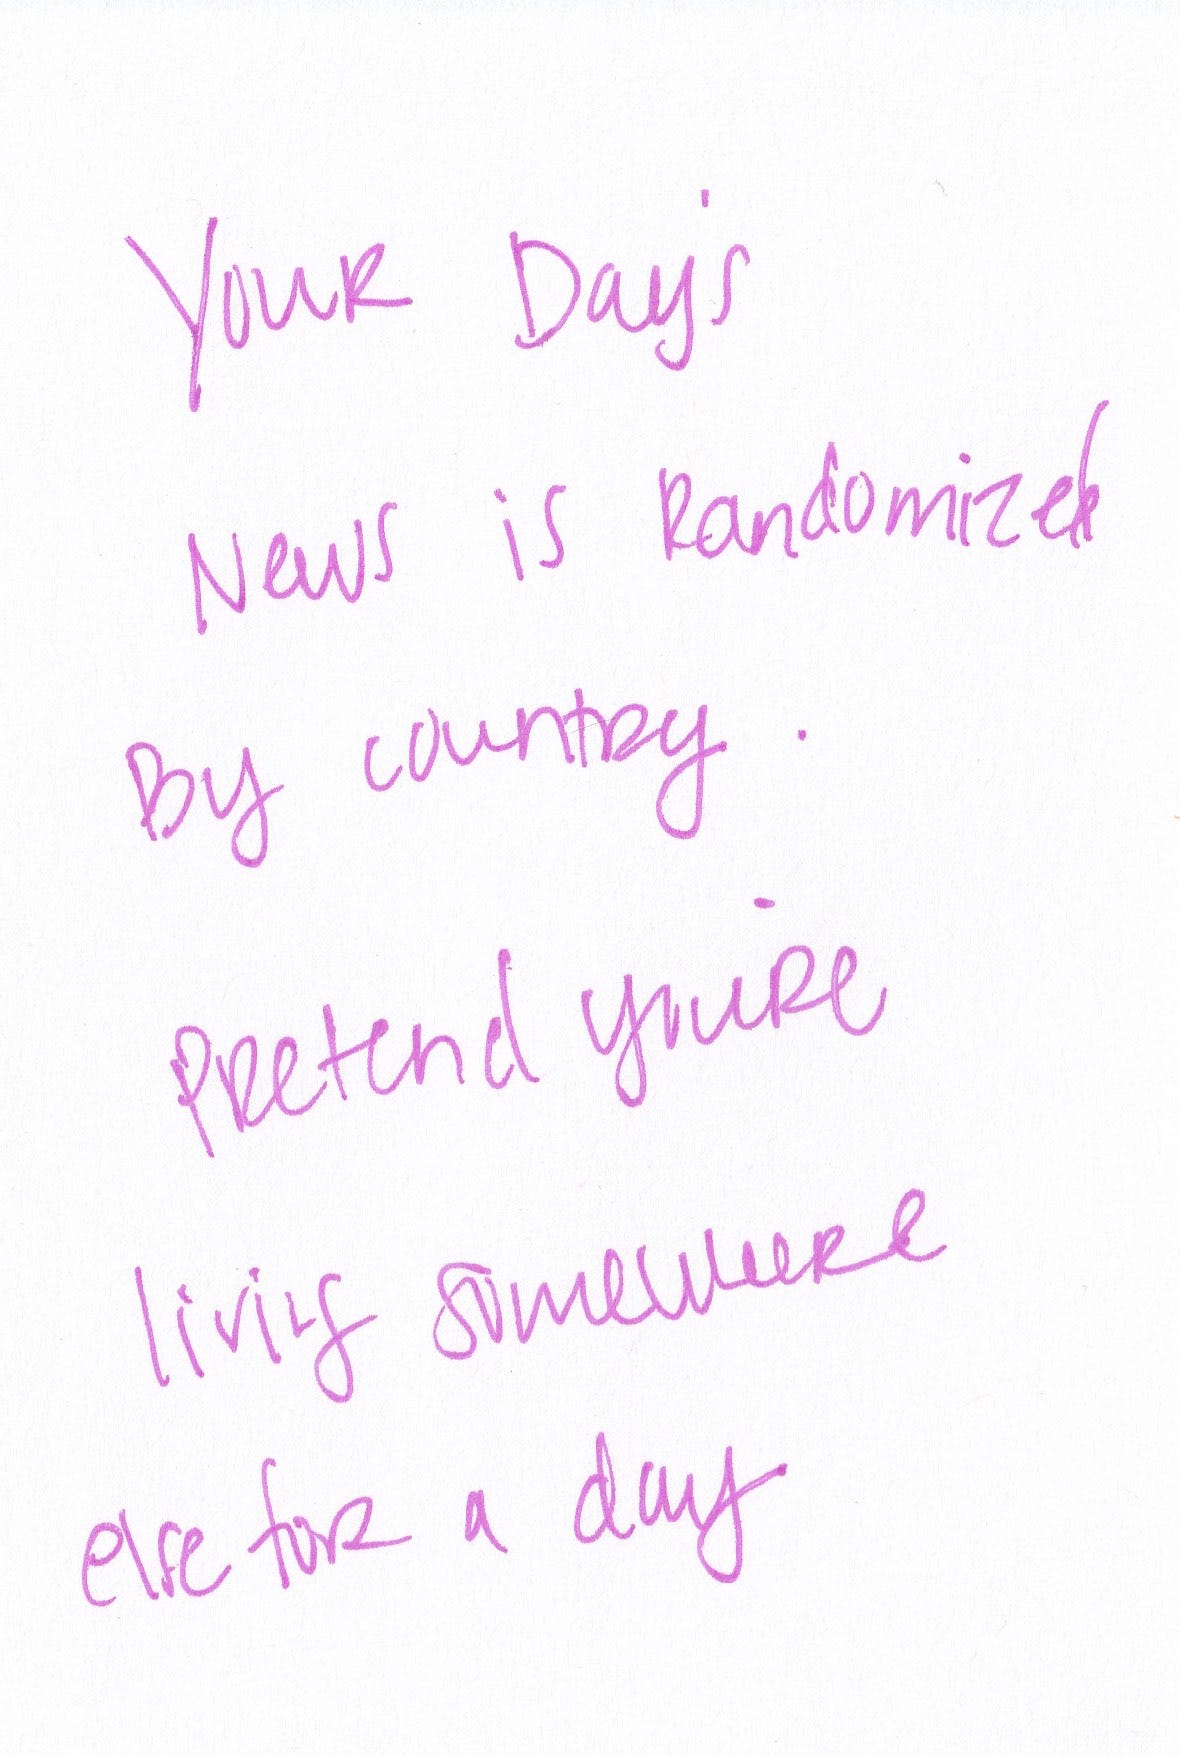 Your Day's
News is Randomized
By country.
Pretend you're
living somewhere
else for a day